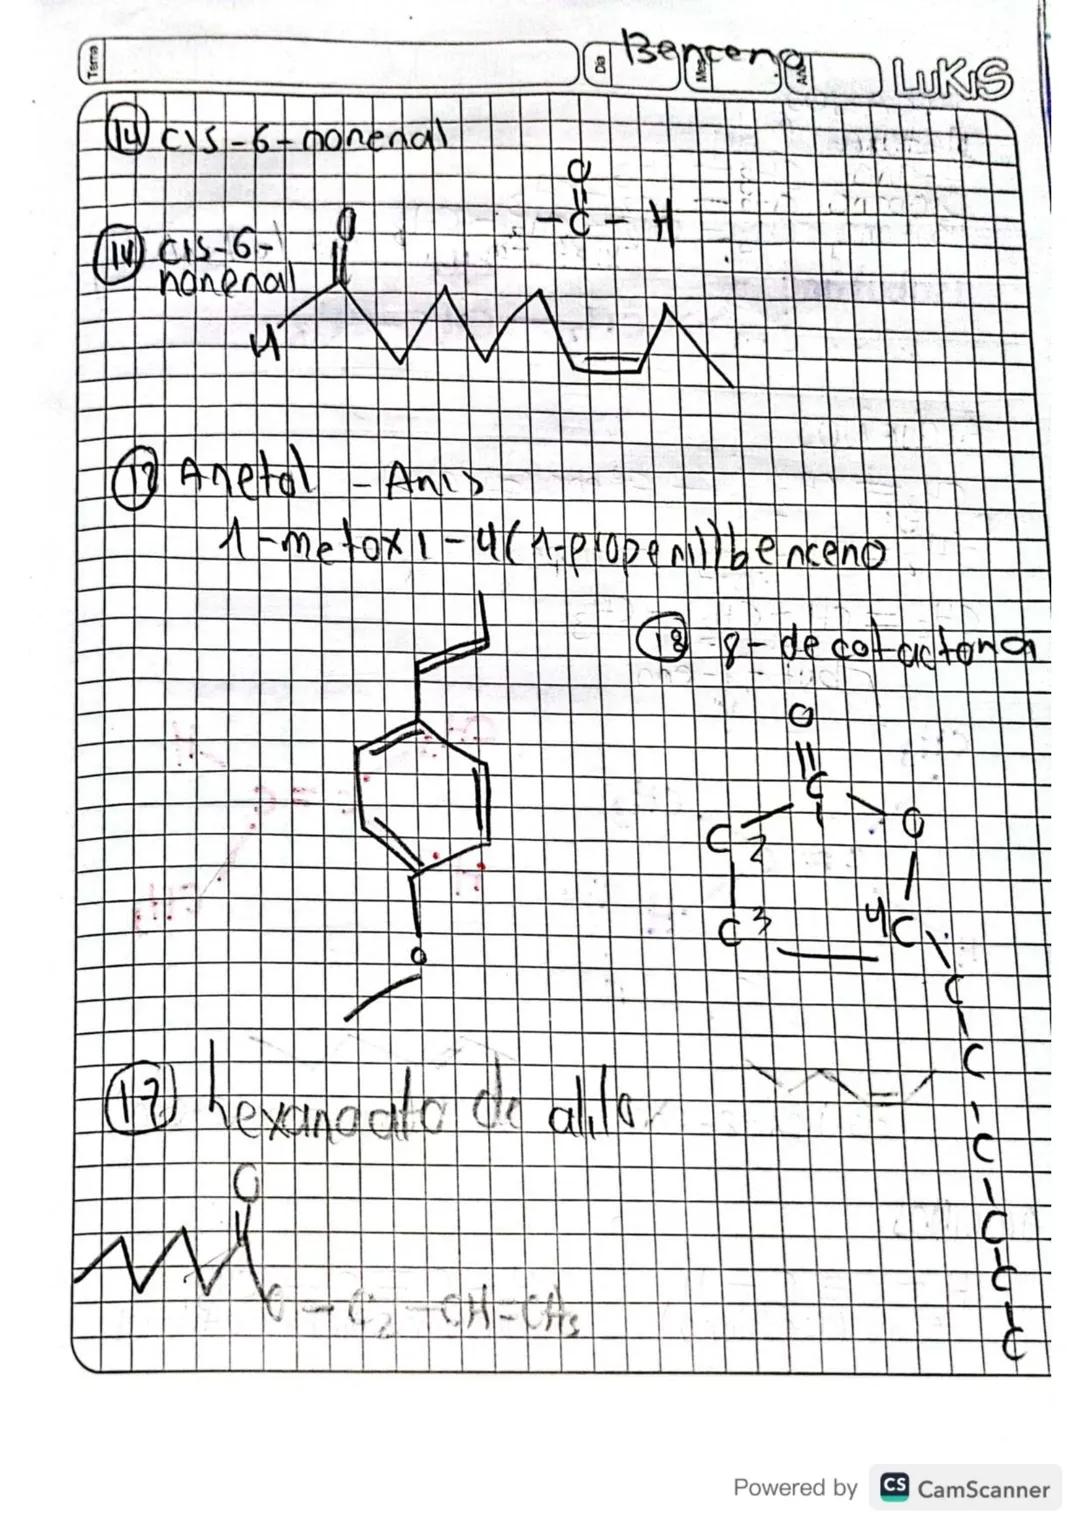 Tema
Dia
Benceno
Mes
Año
LUKIS
14 cis-6-nonenal
O
-C-H
14 cis-6-
nonenal
O
H
Anetol - Anis
1-metoxi-4(1-propenil)benceno
18 8-decalactona
O
C
O
C 2
C 3
4 C
C
C
O
C
C
C
C
17 hexanoato de alilo
O
O-C2-CH-CH3
Powered by CS CamScanner